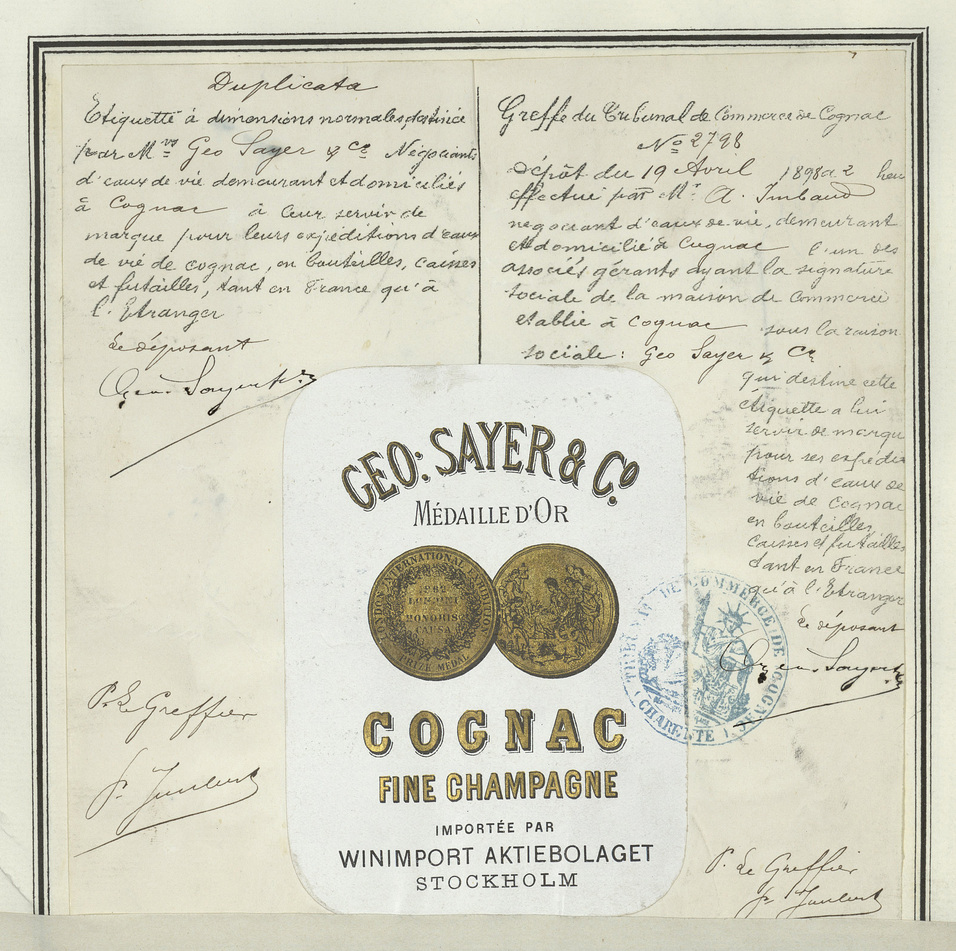 Duplicata
Etiquette à dimensions normales, destinée
par Mrs Geo Sayer & Ce Négociants
d'eaux de vie demeurant et domiciliés
à Cognac à leur servir de
marque pour leurs expéditions d'eaux
de vie de cognac, en bouteilles, caisses
et futailles, tant en France qu'à
l'Etranger
Le déposant
Geo. Sayer & Ce
P. Le Greffier
Greffe du Tribunal de Commerce de Cognac
No 2798
Dépôt du 19 Avril 1898 a 2 heu
effectué par Mr A. Imbaud
negociant d'eaux de vie, demeurant
et domicilié à Cognac l'un des
associés gérants ayant la signature
sociale de la maison de Commerce
etablie à Cognac sous la raison
sociale : Geo Sayer & Ce
qui destine cette
étiquette a lui
servir de marqu
pour ses expédi
tions d'eaux de
vie de Cognac
en bouteilles,
caisses et futailles
tant en France
qu'à l'Etranger
Le déposant
Geo. Sayer & Ce
P. Le Greffier
GEO: SAYER & Co
MÉDAILLE D'OR
LONDON INTERNATIONAL EXHIBITION
1862
LONDINI
HONORIS
CAUSA
PRIZE MEDAL
COGNAC
FINE CHAMPAGNE
IMPORTÉE PAR
WINIMPORT AKTIEBOLAGET
STOCKHOLM
TRIBUNAL DE COMMERCE DE COGNAC
(CHARENTE)